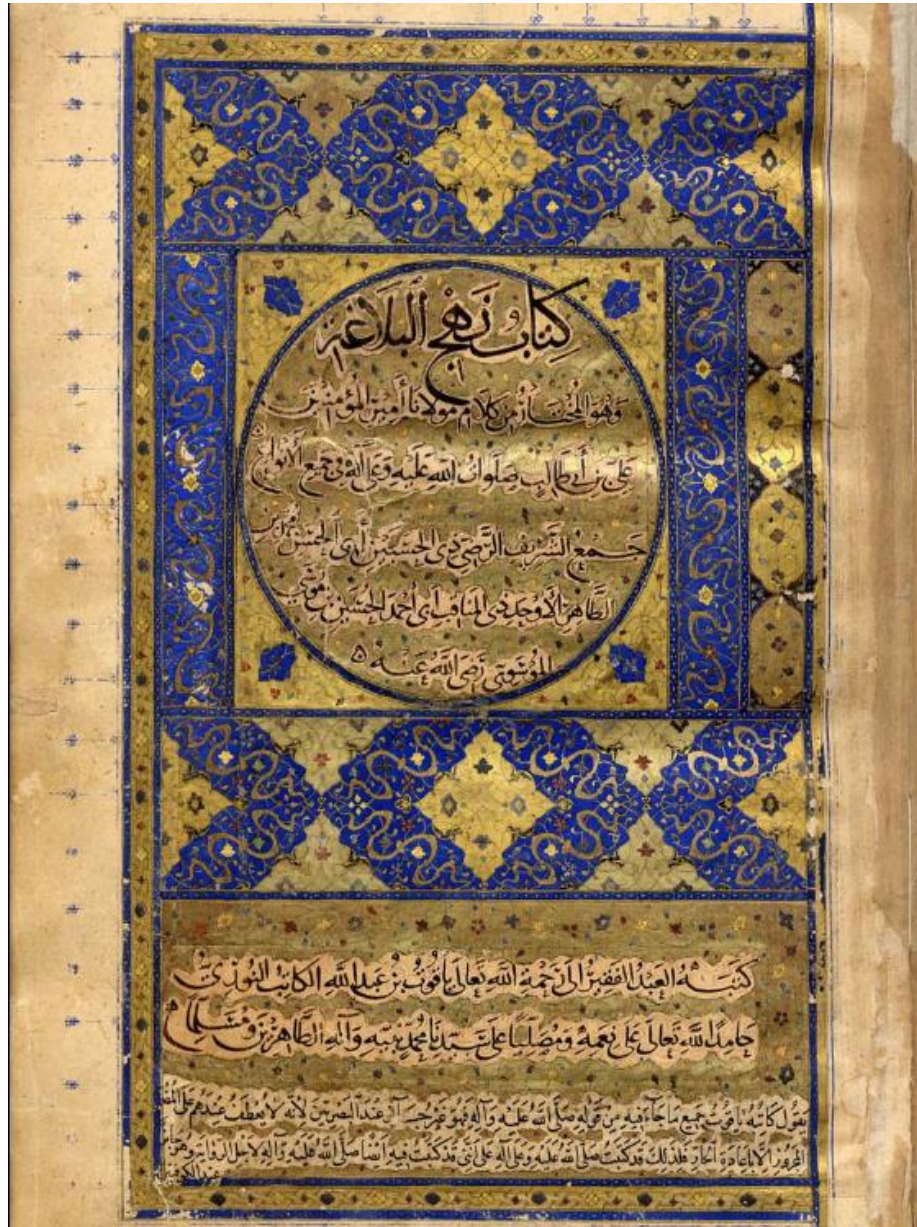 كتاب نهج البلاغة
وهو المختار من كلام مولانا أمير المؤمنين
علي بن أبي طالب صلوات الله عليه وعلى آله في جميع الأنواع
جمع الشريف الرضي ذي الحسبين أبي الحسن محمد بن
الطاهر الأوحد ذي المناقب أبي أحمد الحسين بن موسى
الموسوي رضي الله عنه
كتبه العبد الفقير إلى رحمة الله تعالى ياقوت بن عبد الله الكاتب النوري
حامدا لله تعالى على نعمه ومصليا على سيدنا محمد نبيه وآله الطاهرين ومسلما
يقول كاتبه ياقوت جميع ما جاء فيه من قوله صلى الله عليه وآله فهو غير جائز عند البصريين لأنه لا يعطف عندهم على المضمر
المجرور إلا بإعادة الجار فلذلك قد كتبت صلى الله عليه وعلى آله على أنني قد كتبت فيه أيضا صلى الله عليه وآله لأجل